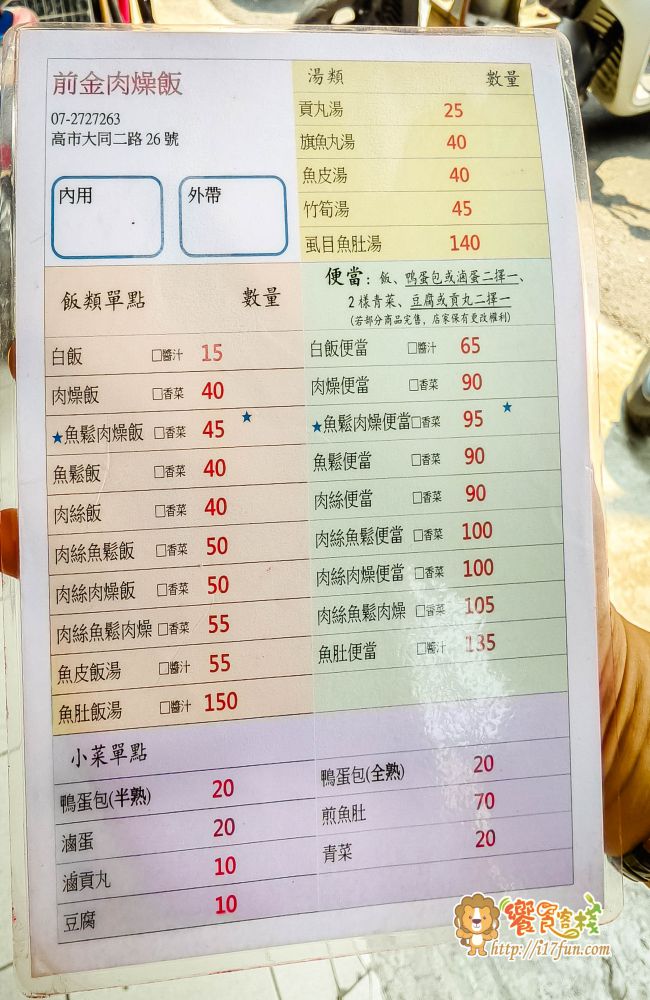 前金肉燥飯
07-2727263
高市大同二路 26 號
內用
外帶
湯類 數量
貢丸湯 25
旗魚丸湯 40
魚皮湯 40
竹筍湯 45
虱目魚肚湯 140
飯類單點 數量
白飯 □醬汁 15
肉燥飯 □香菜 40
★魚鬆肉燥飯 □香菜 45 ★
魚鬆飯 □香菜 40
肉絲飯 □香菜 40
肉絲魚鬆飯 □香菜 50
肉絲肉燥飯 □香菜 50
肉絲魚鬆肉燥 □香菜 55
魚皮飯湯 □醬汁 55
魚肚飯湯 □醬汁 150
便當：飯、鴨蛋包或滷蛋二擇一、
2 樣青菜、豆腐或貢丸二擇一
(若部分商品完售，店家保有更改權利)
白飯便當 □醬汁 65
肉燥便當 □香菜 90
★魚鬆肉燥便當□香菜 95 ★
魚鬆便當 □香菜 90
肉絲便當 □香菜 90
肉絲魚鬆便當 □香菜 100
肉絲肉燥便當 □香菜 100
肉絲魚鬆肉燥 □香菜 105
魚肚便當 □醬汁 135
小菜單點
鴨蛋包(半熟) 20
滷蛋 20
滷貢丸 10
豆腐 10
鴨蛋包(全熟) 20
煎魚肚 70
青菜 20
饗食客棧
http://i17fun.com